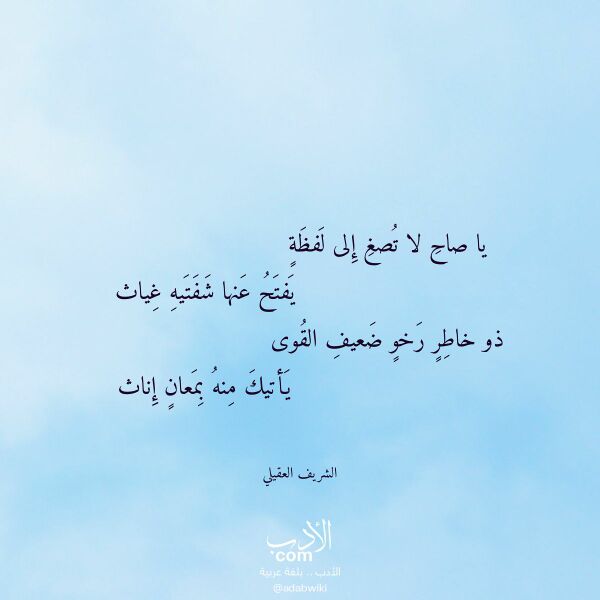 يا صاحِ لا تُصغِ إِلى لَفظَةٍ
يَفتَحُ عَنها شَفَتَيهِ غِياث
ذو خاطِرٍ رَخوٍ ضَعيفِ القُوى
يَأتيكَ مِنهُ بِمَعانٍ إِناث
الشريف العقيلي
الأدب
.com
الأدب .. بلغة عربية
@adabwiki